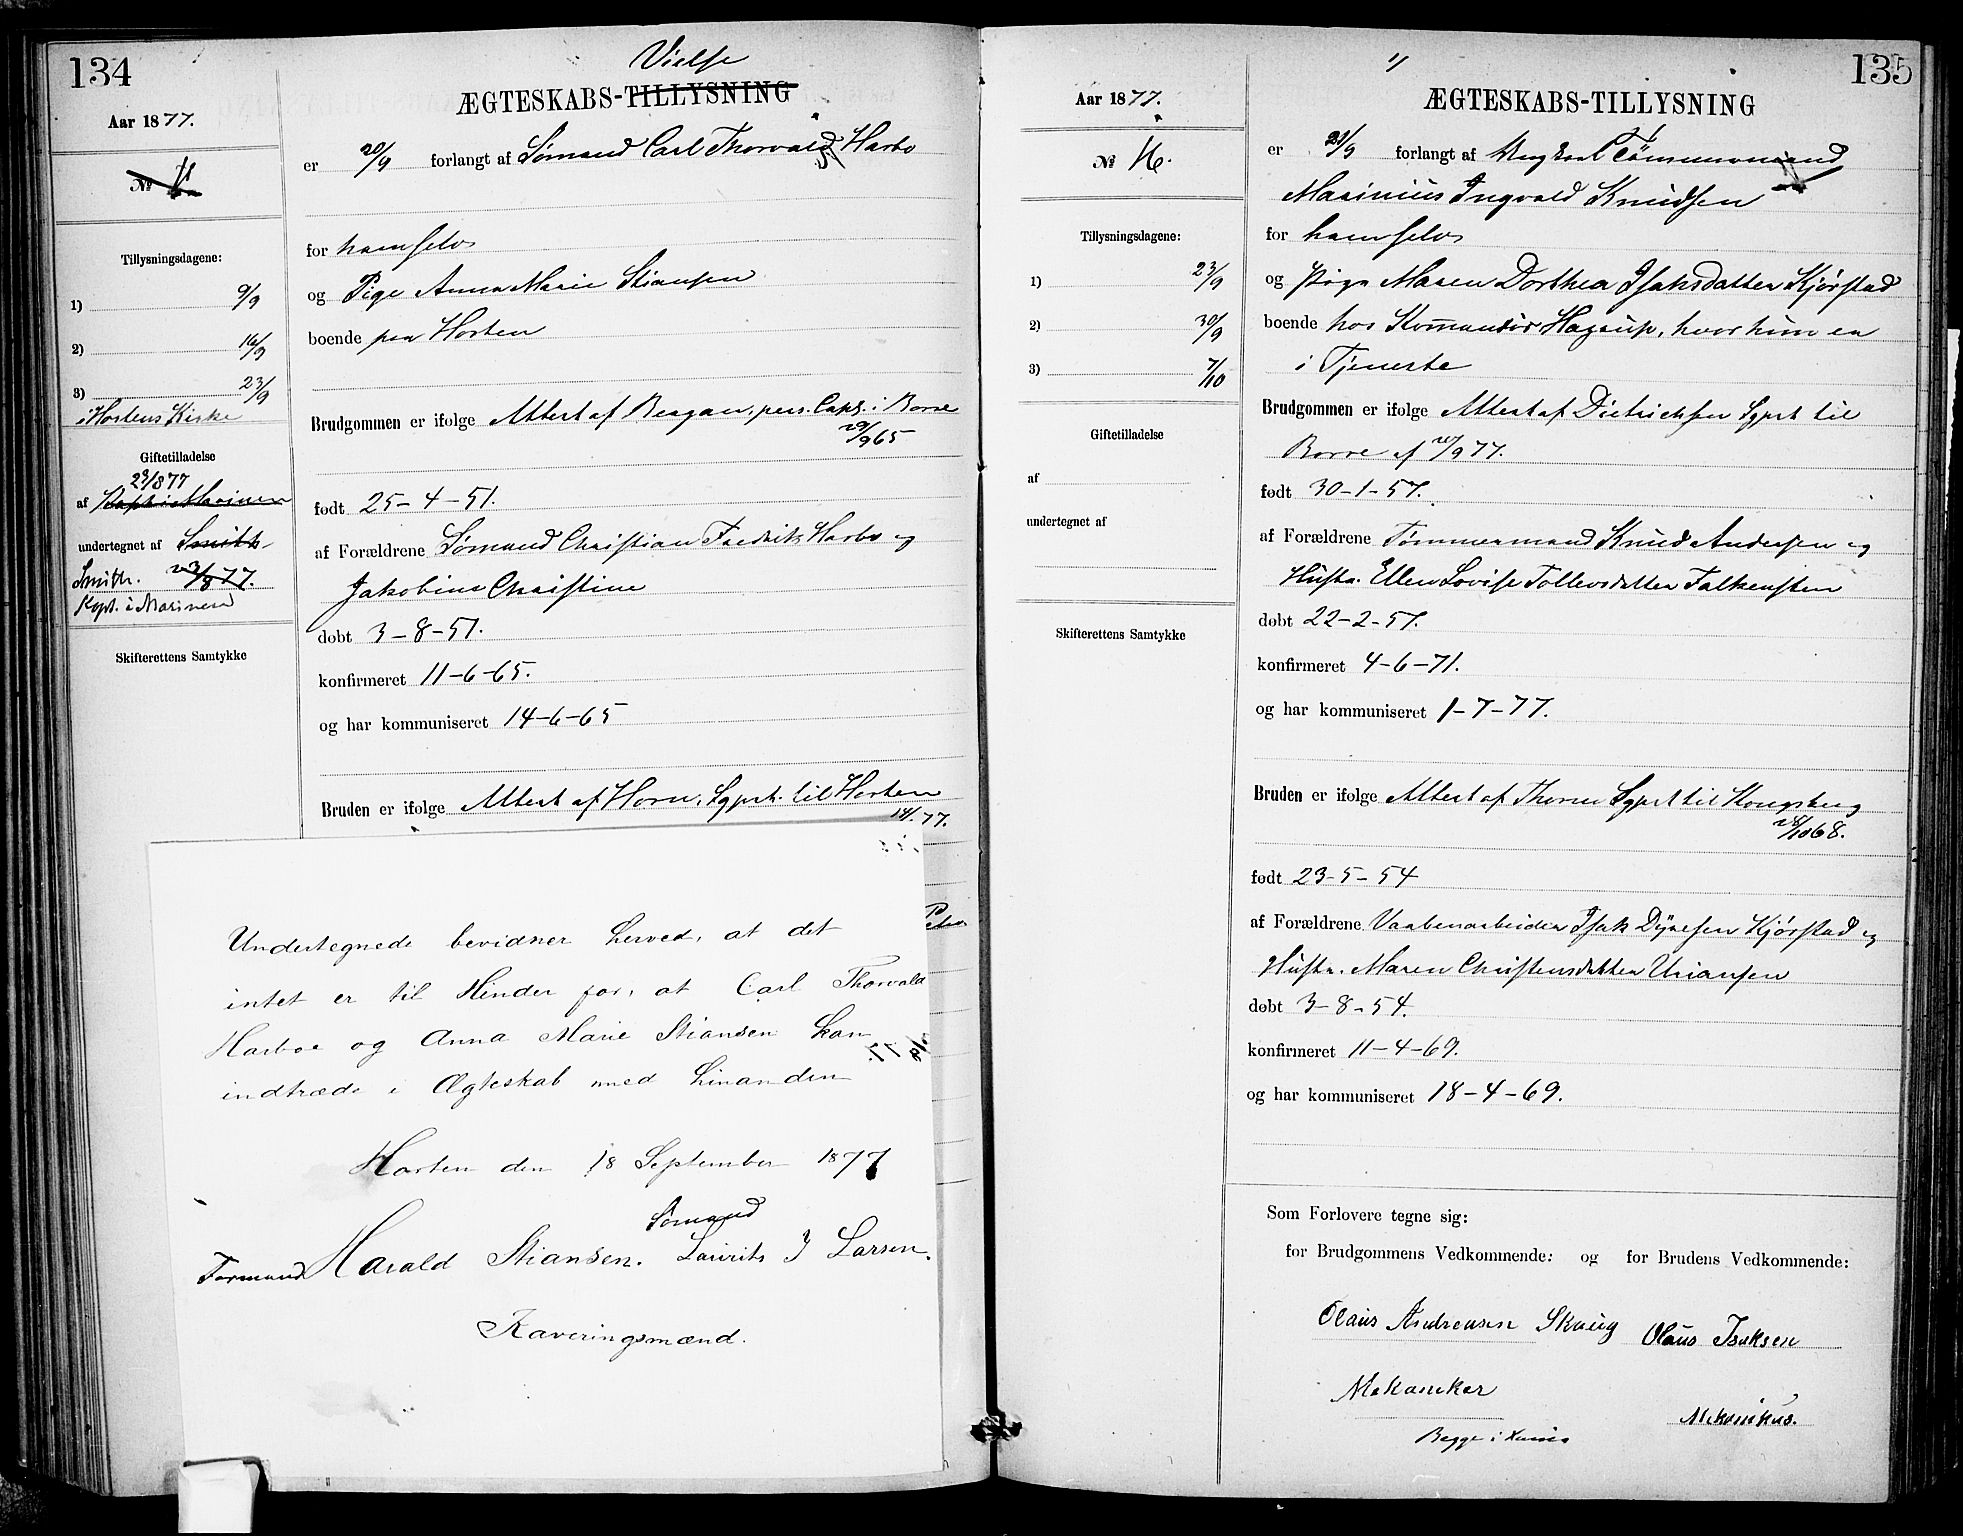 134
Aar 1877.
№
Tillysningsdagene:
1) 9/9
2) 16/9
3) 23/9
i Hortens Kirke
Giftetilladelse
23/8 77
af Kapt. i Marinen
undertegnet af Smith
Smith. 23/8 77.
Kapt. i Marinen
Skifterettens Samtykke
Vielse
ÆGTESKABS-TILLYSNING
er 20/9 forlangt af Sømand Carl Thorvald Harbo
for ham selv
og Pige Anna Marie Stiansen
boende paa Horten
Brudgommen er ifølge Attest af pers. Cap. i Borre
29/9 65
født 25-4-51.
af Forældrene Sømand Christian Fredrik Harbo og
Jakobine Christine
døbt 3-8-51.
konfirmeret 11-6-65.
og har kommuniseret 14-6-65
Bruden er ifølge Attest af Horn, Sgprst. til Horten
77.
Undertegnede bevidner herved, at det
intet er til Hinder for, at Carl Thorvald
Harboe og Anna Marie Stiansen kan
indtræde i Ægteskab med hinanden
Horten den 18 September 1877
Sømand
Formand Harald Stiansen. Laurits J Larsen.
Kaveringsmænd.
135
Aar 1877.
№ 16.
Tillysningsdagene:
1) 23/9
2) 30/9
3) 7/10
Giftetilladelse
af
undertegnet af
Skifterettens Samtykke
ÆGTESKABS-TILLYSNING
er 21/9 forlangt af Ungkarl Tømmermand
Marinius Ingvald Knudsen
for ham selv
og Pige Maren Dorthea Isaksdatter Kjørstad
boende hos Komandør Hagrup, hvor hun er
i Tjeneste
Brudgommen er ifølge Attest af Dietrichsen Sgprst til
Borre af 21/9 77.
født 30-1-57.
af Forældrene Tømmermand Knud Andersen og
Hustr. Ellen Lovise Tollevsdatter Falkensten
døbt 22-2-57.
konfirmeret 4-6-71.
og har kommuniseret 1-7-77.
Bruden er ifølge Attest af Thorne Sgprst til Kongsberg
28/10 68.
født 23-5-54
af Forældrene Vaabenarbeider Isak Dyresen Kjørstad og
Hustr. Maren Christensdatter Uriansen
døbt 3-8-54.
konfirmeret 11-4-69.
og har kommuniseret 18-4-69.
Som Forlovere tegne sig:
for Brudgommens Vedkommende: og for Brudens Vedkommende:
Olaus Andreasen Skaug Olaus Isaksen
Mekaniker
Mekanikus.
Begge i